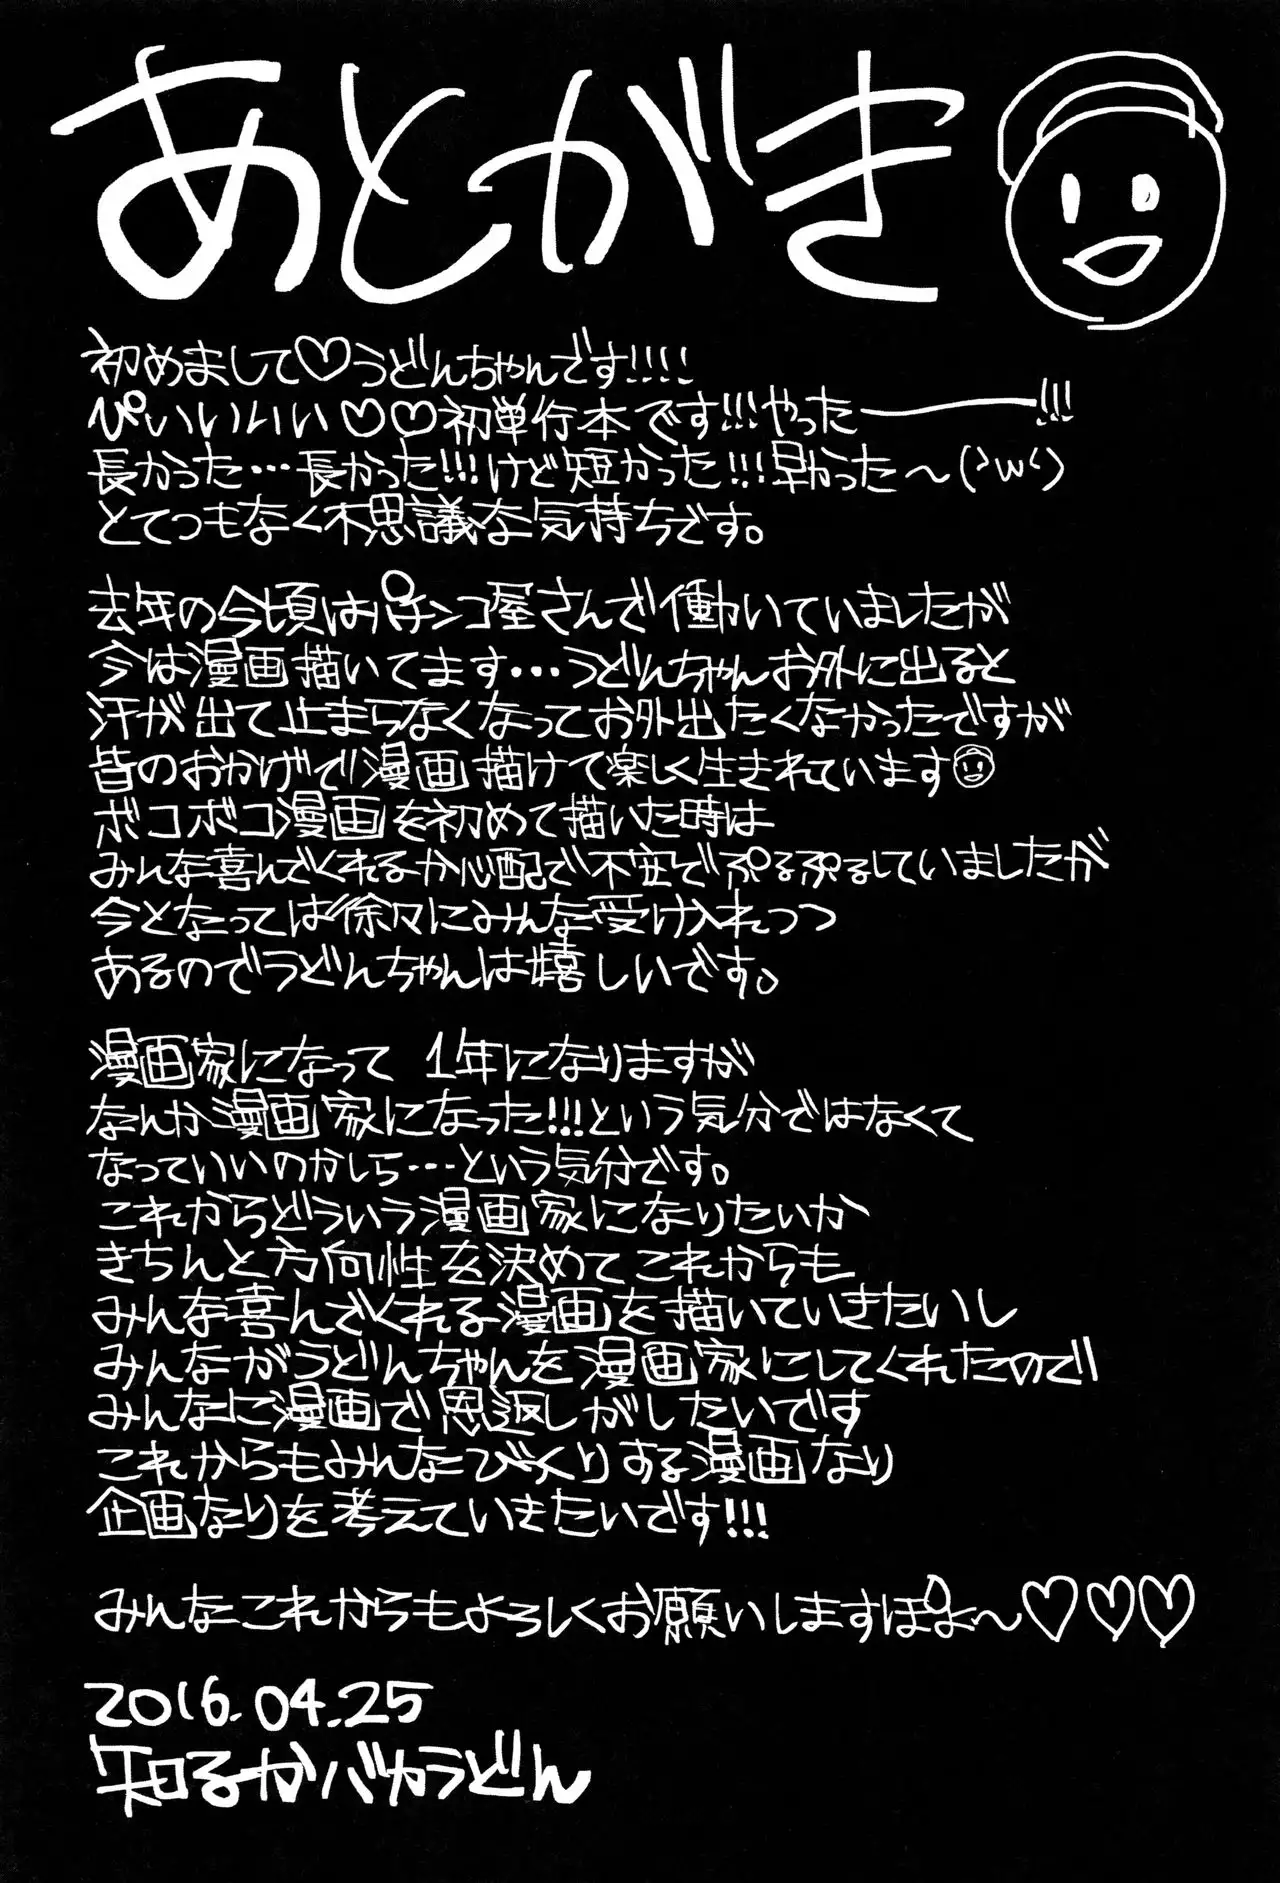 あとがき
初めまして♡うどんちゃんです!!!!
ぴぃいいい♡♡初単行本です!!!やったー!!!
長かった…長かった!!!けど短かった!!!早かった～(>w<)
とてつもなく不思議な気持ちです。
去年の今頃はパチンコ屋さんで働いていましたが
今は漫画描いてます…うどんちゃんお外に出ると
汗が出て止まらなくなってお外出たくなかったですが
皆のおかげで漫画描けて楽しく生きれています
ボコボコ漫画を初めて描いた時は
みんな喜んでくれるか心配で不安でぷるぷるしていましたが
今となっては徐々にみんな受け入れつつ
あるのでうどんちゃんは嬉しいです。
漫画家になって 1年になりますが
なんか漫画家になった!!!という気分ではなくて
なっていいのかしら…という気分です。
これからどういう漫画家になりたいか
きちんと方向性を決めてこれからも
みんな喜んでくれる漫画を描いていきたいし
みんながうどんちゃんを漫画家にしてくれたので
みんなに漫画で恩返しがしたいです
これからもみんなびっくりする漫画なり
企画なりを考えていきたいです!!!
みんなこれからもよろしくお願いしますぽよ～♡♡♡
2016.04.25
知るかバカうどん